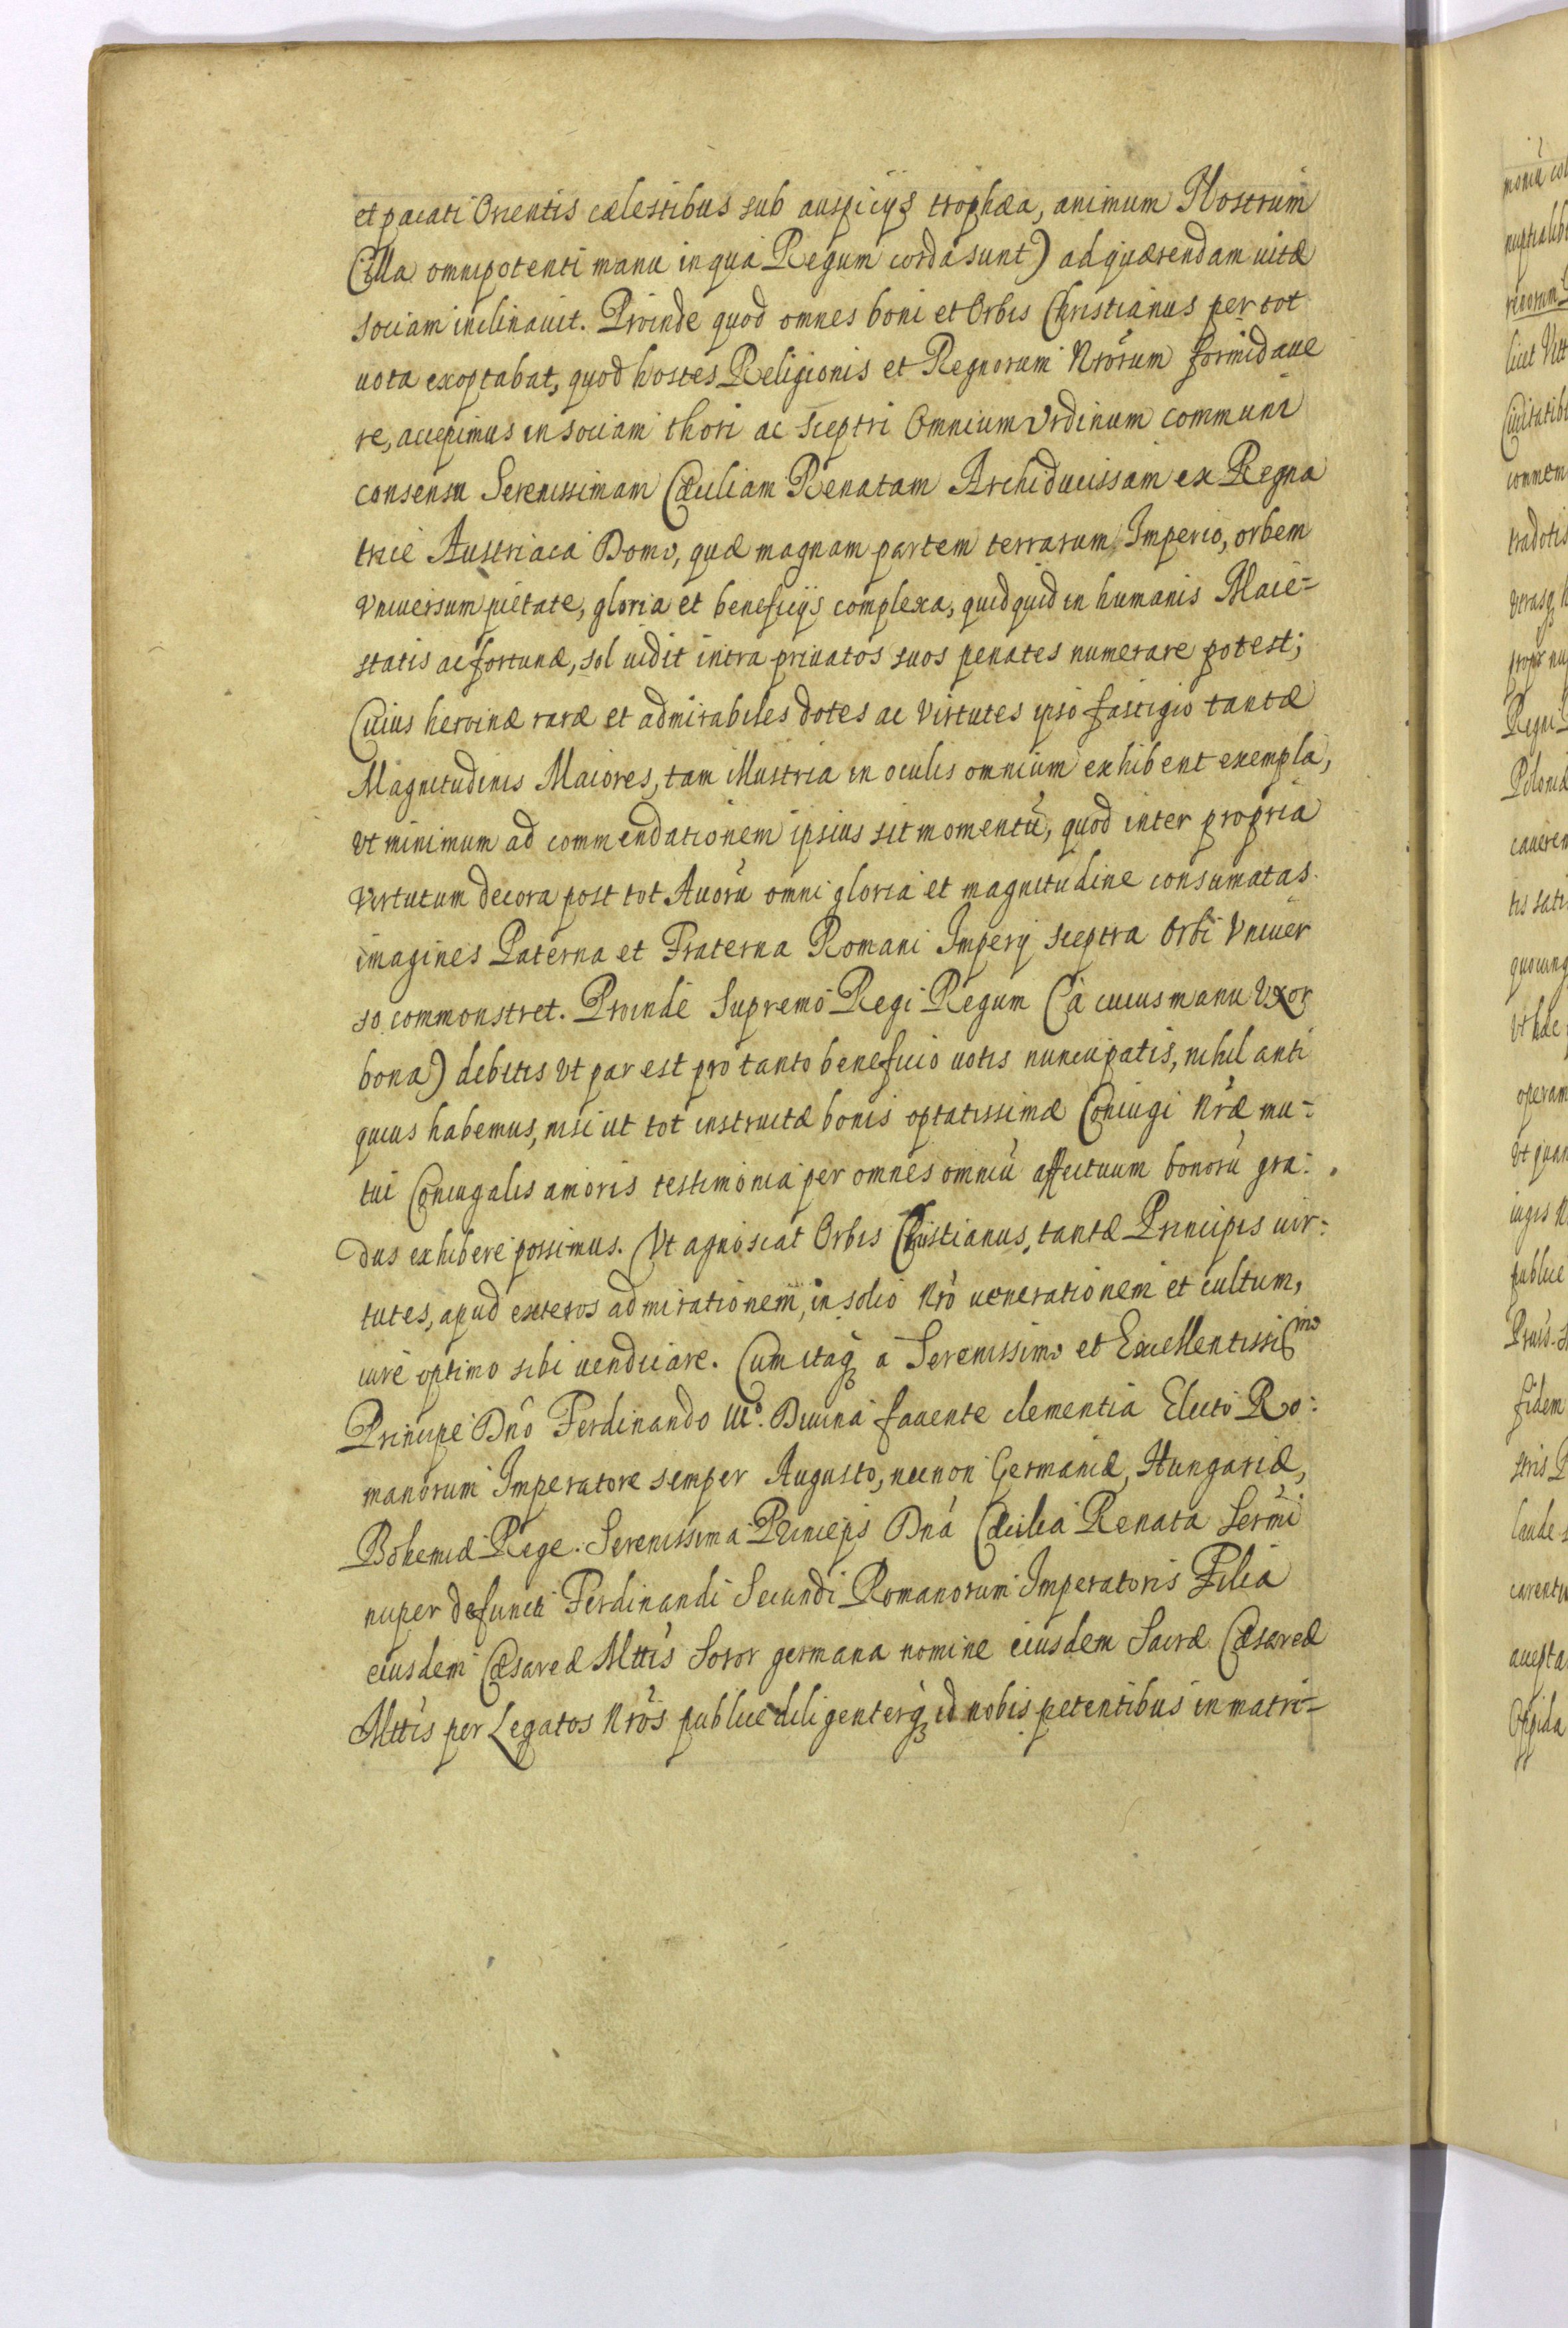 et pacati Orientis cælestibus sub auspicijs trophæa, animum Nostrum
(illa omnipotenti manu in qua Regum corda sunt) ad quærendam uitæ
sociam inclinauit. Proinde quod omnes boni et Orbis Christianus per tot
uota exoptabat, quod hostes Religionis et Regnorum Nrorum formidaue
re, accepimus in sociam thori ac sceptri Omnium Ordinum communi
consensu Serenissimam Cæciliam Renatam Archiducissam ex Regna
trice Austriaca Domo, quæ magnam partem terrarum Imperio, orbem
Vniuersum pietate, gloria et beneficijs complexa, quidquid in humanis Maie=
statis ac fortunæ, sol uidit intra priuatos suos penates numerare potest;
Cuius heroinæ raræ et admirabiles dotes ac Virtutes ipso fastigio tantæ
Magnitudinis Maiores, tam illustria in oculis omnium exhibent exempla,
Vt minimum ad commendationem ipsius sit momentũ, quod inter propria
Virtutum decora post tot Auorũ omni gloria et magnitudine consumatas
imagines Paterna et Fraterna Romani Imperij sceptra Orbi Vniuer
so commonstret. Proinde Supremo Regi Regum (à cuius manu Uxor
bona) debitis Vt par est pro tanto beneficio uotis nuncupatis, nihil anti
quius habemus, nisi ut tot instructæ bonis optatissimæ Coniugi Nræ mu=
tui Coniugalis amoris testimonia per omnes omniũ affectuum bonorũ gra:
dus exhibere possimus. Vt agnoscat Orbis Christianus, tantæ Principis uir=
tutes, apud exteros admirationem, in solio Nro uenerationem et cultum,
iure optimo sibi uendicare. Cum itaq; a Serenissimo et Excellentissimo
Principe Dno Ferdinando IIIo. Diuina fauente clementia Electo Ro:
manorum Imperatore semper Augusto, necnon Germaniæ, Hungariæ,
Bohemiæ Rege. Serenissima Princeps Dna Cæcilia Renata Sermi
nuper defuncti Ferdinandi Secundi Romanorum Imperatoris Filia
eiusdem Cæsareæ Mttis Soror germana nomine eiusdem Sacræ Cæsareæ
Mttis per Legatos Nros publice diligenterq; id nobis petentibus in matri=